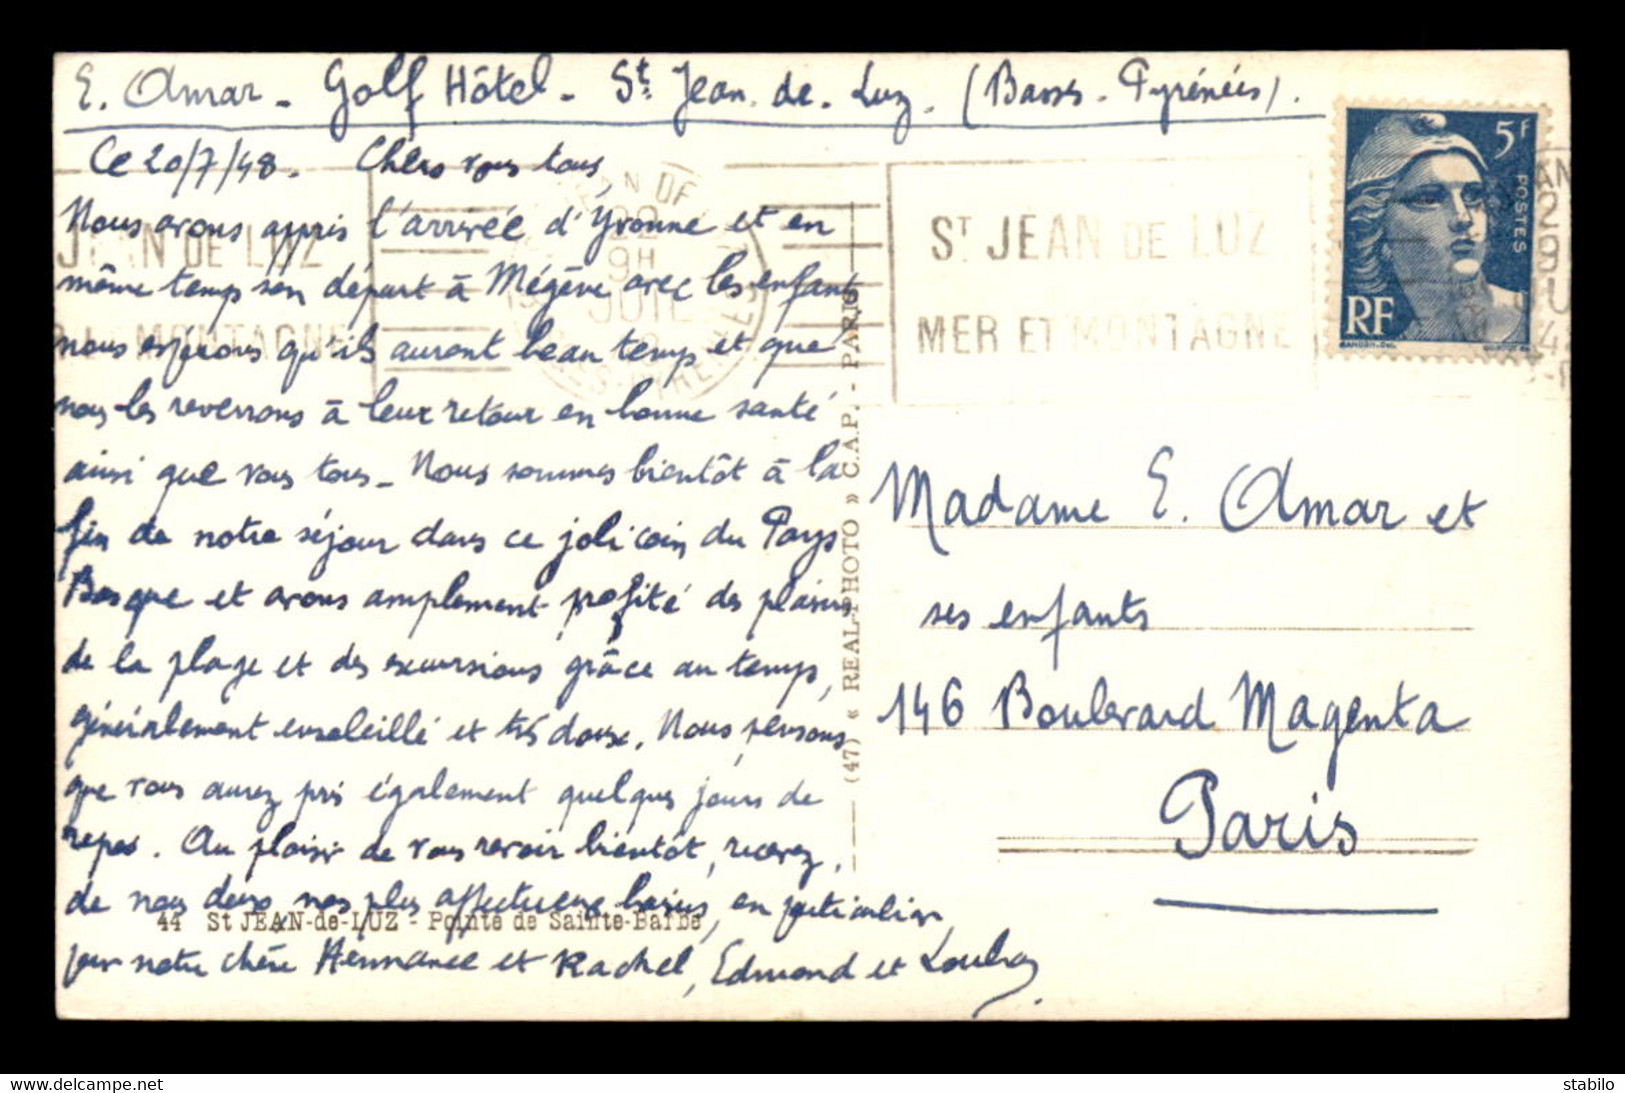 E. Amar - Golf Hôtel - St. Jean. de. Luz. (Basses - Pyrénées).
Ce 20/7/48. Chers vous tous,
Nous avons appris l'arrivée d'Yvonne et en
même temps son départ à Mégève avec les enfants
nous espérons qu'ils auront beau temps et que
nous les reverrons à leur retour en bonne santé
ainsi que vous tous - Nous sommes bientôt à la
fin de notre séjour dans ce joli coin du Pays
Basque et avons amplement profité des plaisirs
de la plage et des excursions grâce au temps,
généralement ensoleillé et très doux. Nous pensons
que vous aurez pris également quelques jours de
repos. Au plaisir de vous revoir bientôt, recevez,
de nous deux nos plus affectueux baisers, en particulier,
pour notre chère Hermance et Rachel, Edmond et
44 St JEAN-de-LUZ - Pointe de Sainte-Barbe
(47) « REAL-PHOTO » C.A.P. - PARIS
ST JEAN DE LUZ
MER ET MONTAGNE
JEAN DE LUZ
MONTAGNE
22
9H
JUIL
5F
POSTES
RF
GANDON-DEL.
Madame E. Amar et
ses enfants
146 Boulevard Magenta
Paris
delcampe.net
stabilo